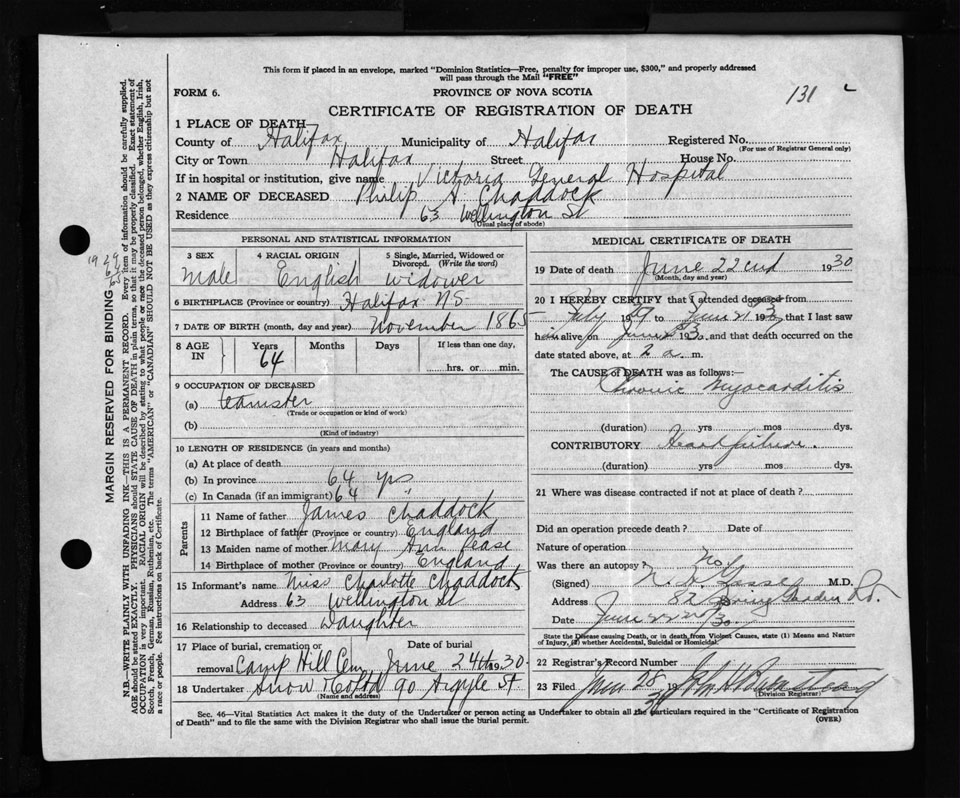 This form if placed in an envelope, marked "Dominion Statistics—Free, penalty for improper use, $300," and properly addressed
will pass through the Mail "FREE"
FORM 6.
PROVINCE OF NOVA SCOTIA
131
CERTIFICATE OF REGISTRATION OF DEATH
1 PLACE OF DEATH
County of Halifax Municipality of Halifax Registered No.
(For use of Registrar General only)
City or Town Halifax Street House No.
If in hospital or institution, give name Victoria General Hospital
2 NAME OF DECEASED Philip A Chaddock
Residence 63 Wellington St
(Usual place of abode)
PERSONAL AND STATISTICAL INFORMATION
3 SEX 4 RACIAL ORIGIN 5 Single, Married, Widowed or
Divorced. (Write the word)
Male English Widower
6 BIRTHPLACE (Province or country) Halifax N.S.
7 DATE OF BIRTH (month, day and year) November 1865
8 AGE IN Years Months Days If less than one day,
64 hrs. or min.
9 OCCUPATION OF DECEASED
(a) teamster
(Trade or occupation or kind of work)
(b)
(Kind of industry)
10 LENGTH OF RESIDENCE (in years and months)
(a) At place of death
(b) In province 64 yrs
(c) In Canada (if an immigrant) 64 "
Parents
11 Name of father James Chaddock
12 Birthplace of father (Province or country) England
13 Maiden name of mother Mary Ann Pease
14 Birthplace of mother (Province or country) England
15 Informant's name Miss Charlotte Chaddock
Address 63 Wellington St
16 Relationship to deceased Daughter
17 Place of burial, cremation or Date of burial
removal Camp Hill Cem June 24th 1930
18 Undertaker Snow & Co Ltd 90 Argyle St
(Name and address)
MEDICAL CERTIFICATE OF DEATH
19 Date of death June 22nd 1930
(Month, day and year)
20 I HEREBY CERTIFY that I attended deceased from
1929 to June 21 1930, that I last saw
him alive on June 1930, and that death occurred on the
date stated above, at 2 a. m.
The CAUSE of DEATH was as follows:—
Chronic Myocarditis
(duration) yrs mos dys.
CONTRIBUTORY Heart failure.
(duration) yrs mos dys.
21 Where was disease contracted if not at place of death?
Did an operation precede death? Date of
Nature of operation
Was there an autopsy No
(Signed) M.D.
Address 82 Spring Garden Rd.
Date June 22/30.
State the Disease causing Death, or in death from Violent Causes, state (1) Means and Nature
of Injury, (2) whether Accidental, Suicidal or Homicidal.
22 Registrar's Record Number
23 Filed June 28 1930
(Division Registrar)
Sec. 46—Vital Statistics Act makes it the duty of the Undertaker or person acting as Undertaker to obtain all the particulars required in the "Certificate of Registration
of Death" and to file the same with the Division Registrar who shall issue the burial permit.
(OVER)
MARGIN RESERVED FOR BINDING
N.B.—WRITE PLAINLY WITH UNFADING INK—THIS IS A PERMANENT RECORD. Every item of information should be carefully supplied.
AGE should be stated EXACTLY. PHYSICIANS should STATE CAUSE OF DEATH in plain terms, so that it may be properly classified. Exact statement of
OCCUPATION is very important. RACIAL ORIGIN will be described by stating to what people or race the deceased person belonged, whether English, Irish,
Scotch, French, German, Russian, Ruthenian, etc. The terms "AMERICAN" or "CANADIAN" SHOULD NOT BE USED as they express citizenship but not
a race or people. See instructions on back of Certificate.